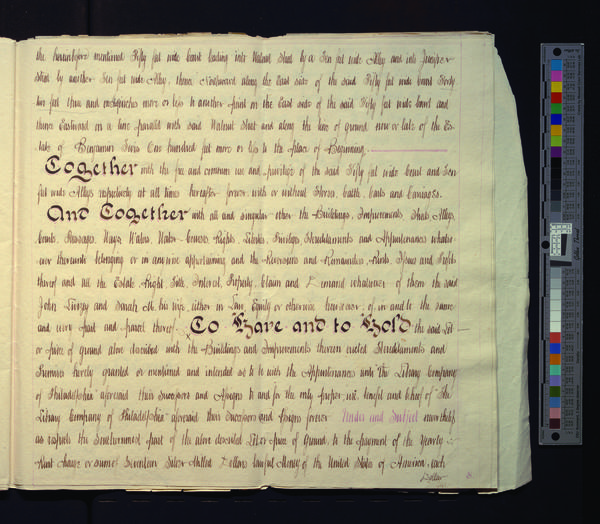 the hereinbefore mentioned Fifty feet wide Court leading into Walnut Street by a Ten feet wide Alley and into Juniper
Street by another Ten feet wide Alley, thence Northward along the East side of the said Fifty feet wide Court Forty
two feet three and inches more or less to another point on the East side of the said Fifty feet wide Court and
thence Eastward on a line parallel with said Walnut Street and along the line of ground now or late of the Es-
tate of Benjamin One hundred feet more or less to the place of Beginning.
Together with the free and common use and privilege of the said Fifty feet wide Court and Ten
feet wide Alleys respectively at all times hereafter forever, with or without Horses, Cattle, Carts and Carriages.
And Together with all and singular other the Buildings, Improvements, Streets, Alleys,
Courts, Passages, Ways, Waters, Water-Courses, Rights, Liberties, Privileges, Hereditaments and Appurtenances whatso-
ever thereunto belonging or in anywise appertaining and the Reversions and Remainders, Rents, Issues and Profits
thereof and all the Estate, Right, Title, Interest, Property, Claim and Demand whatsoever of them the said
John Livezey and Sarah M. his wife, either in Law, Equity or otherwise howsoever, of, in and to the same
and every part and parcel thereof. To Have and to Hold the said Lot
or piece of ground above described with the Buildings and Improvements thereon erected Hereditaments and
Premises hereby granted or mentioned and intended so to be with the Appurtenances unto The Library Company
of Philadelphia aforesaid their Successors and Assigns to and for the only proper use, benefit and behoof of "The
Library Company of Philadelphia" aforesaid their Successors and Assigns forever. Under and Subject nevertheless
as respects the part of the above described Lot or piece of Ground, to the payment of the Yearly
Rent charge or sum of Seventeen Silver Milled Dollars lawful Money of the United States of America, each
Dollar